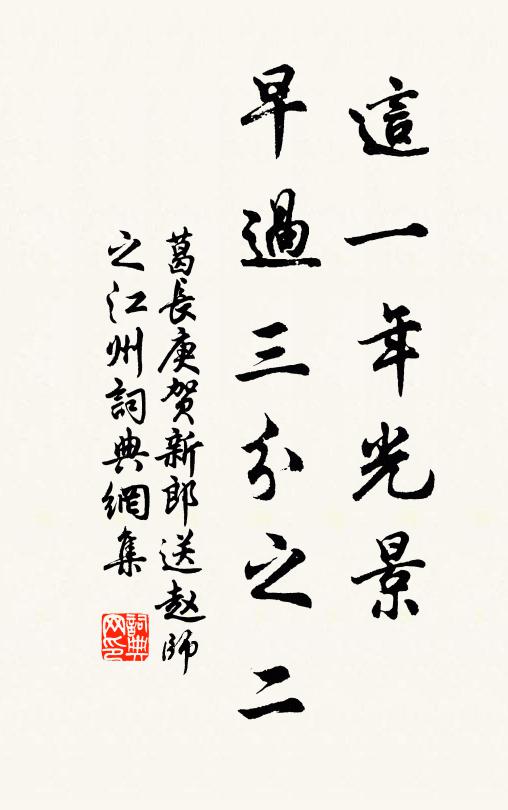 這一年光景
早過三分之二
葛長庚賀新郎送赵師
之江州詞典網集
詞典网印